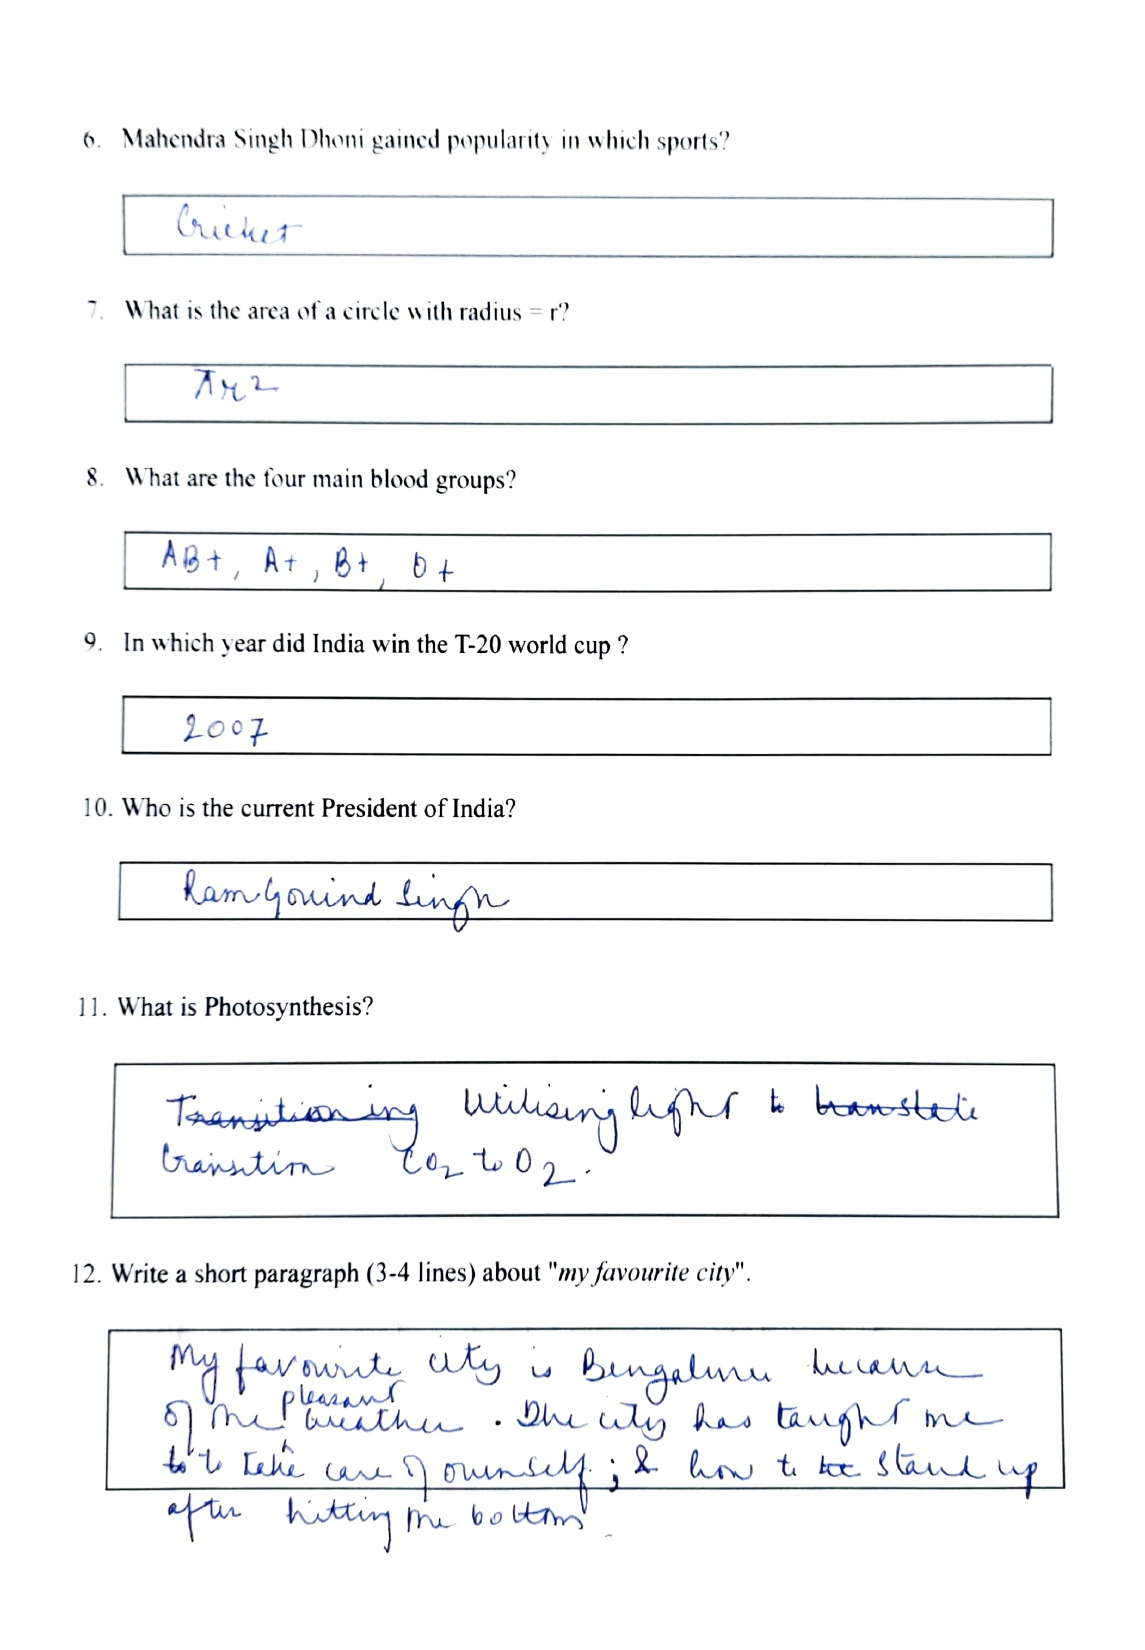 6. Mahendra Singh Dhoni gained popularity in which sports?
Cricket
7. What is the area of a circle with radius = r?
πr2
8. What are the four main blood groups?
AB+, A+, B+, O+
9. In which year did India win the T-20 world cup ?
2007
10. Who is the current President of India?
Ram Govind Singh
11. What is Photosynthesis?
Transitioning Utilising light to translate
transition CO2 to O2.
12. Write a short paragraph (3-4 lines) about "my favourite city".
My favourite city is Bengaluru because
pleasant
of the weather. The city has taught me
to to take care of ourself; & how to be stand up
after hitting the bottom